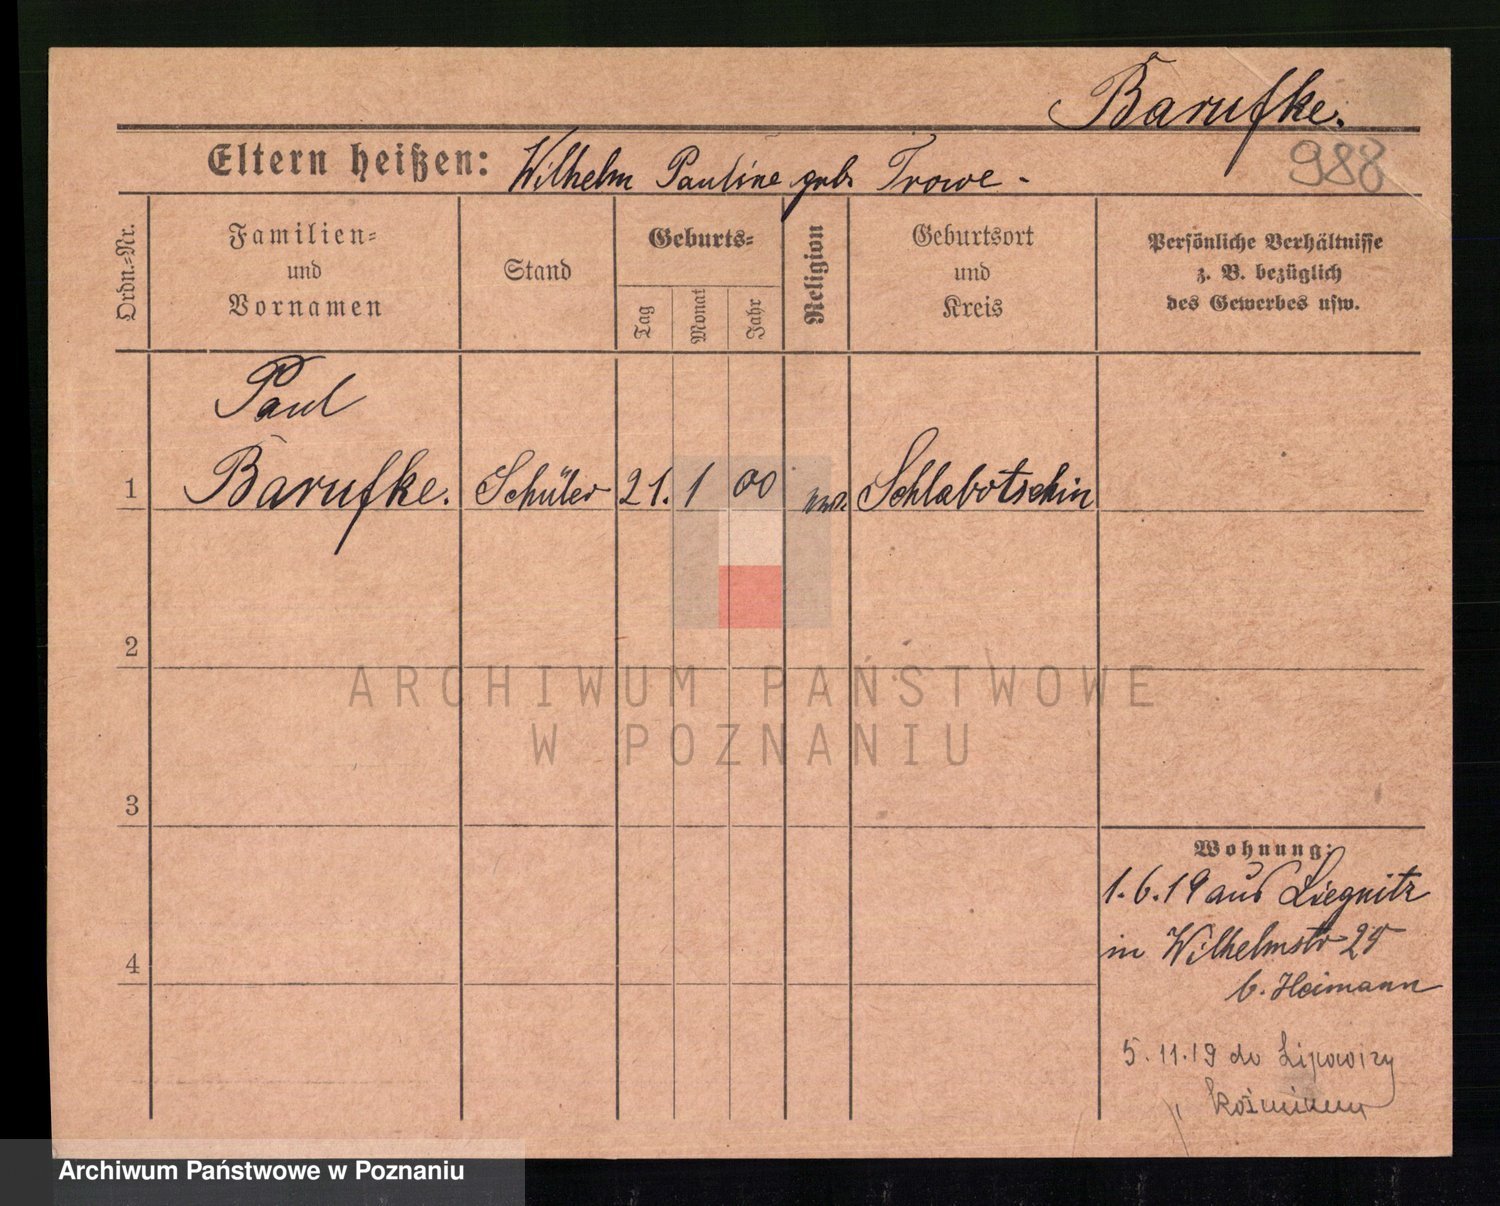 Barufke.
988
Eltern heißen: Wilhelm Pauline geb. Trowe -
Ordn.=Nr.
Familien=
und
Vornamen
Stand
Geburts=
Tag
Monat
Jahr
Religion
Geburtsort
und
Kreis
Persönliche Verhältnisse
z. B. bezüglich
des Gewerbes usw.
Paul
1 Barufke. Schüler 21. 1 00 Schlabotschin
2
3
4
Wohnung:
1.6.19 aus Liegnitz
in Wilhelmstr
b. Heimann
5.11.19 do
ARCHIWUM PAŃSTWOWE
W POZNANIU
Archiwum Państwowe w Poznaniu